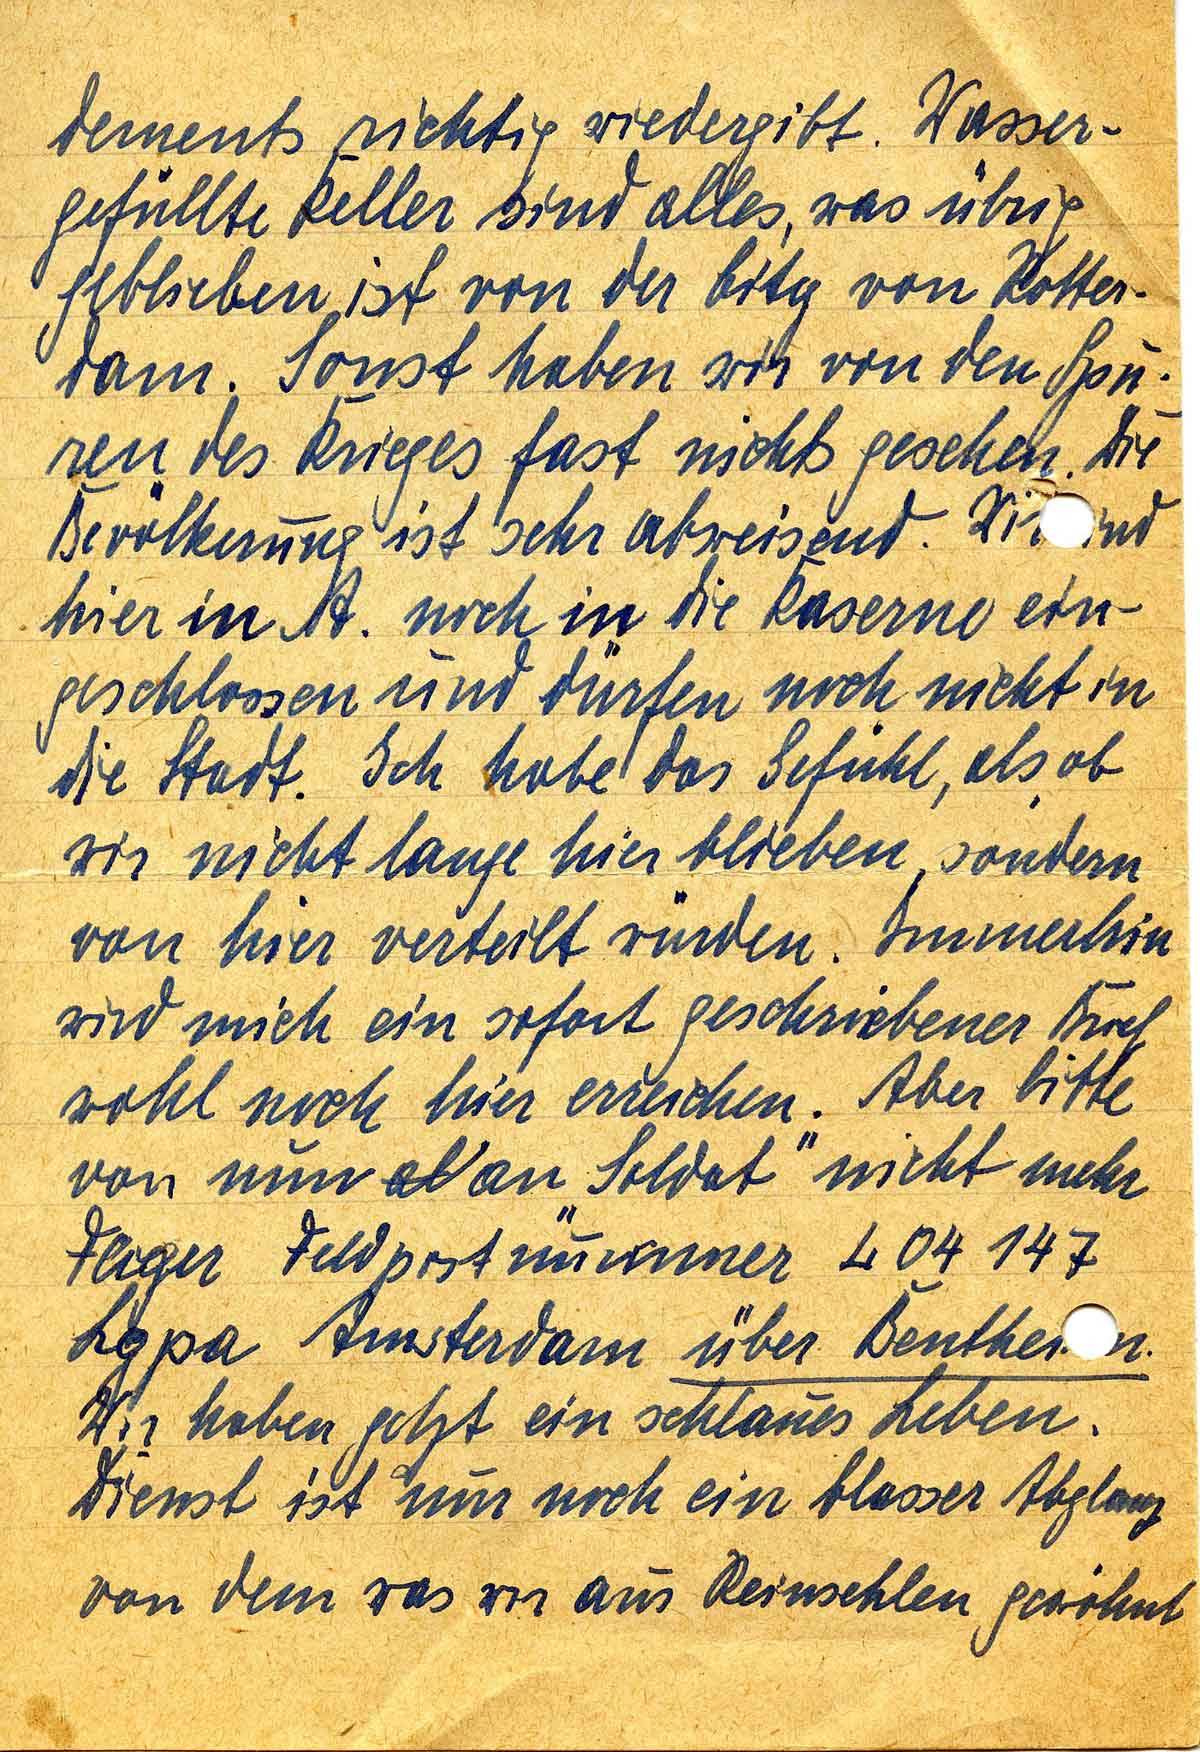 dements richtig wiedergibt. Wasser-
gefüllte Keller sind alles, was übrig
geblieben ist von der City von Rotter-
dam. Sonst haben wir von den Spu-
ren des Krieges fast nichts gesehen. Die
Bevölkerung ist sehr abweisend. Wir ind
hier in A. noch in die Kaserne ein-
geschlossen und dürfen noch nicht in
die Stadt. Ich habe das Gefühl, als ob
wir nicht lange hier blieben, sondern
von hier verteilt würden. Immerhin
wird mich ein sofort geschriebener Brief
wohl noch hier erreichen. Aber bitte
von nun an "Soldat" nicht mehr
Flieger Feldpostnummer L 04 147
Lgpa Amsterdam über Benthei n.
Wir haben jetzt ein schlaues Leben.
Dienst ist nur noch ein blasser Abglanz
von dem was wir aus Reinsehlen gewöhnt